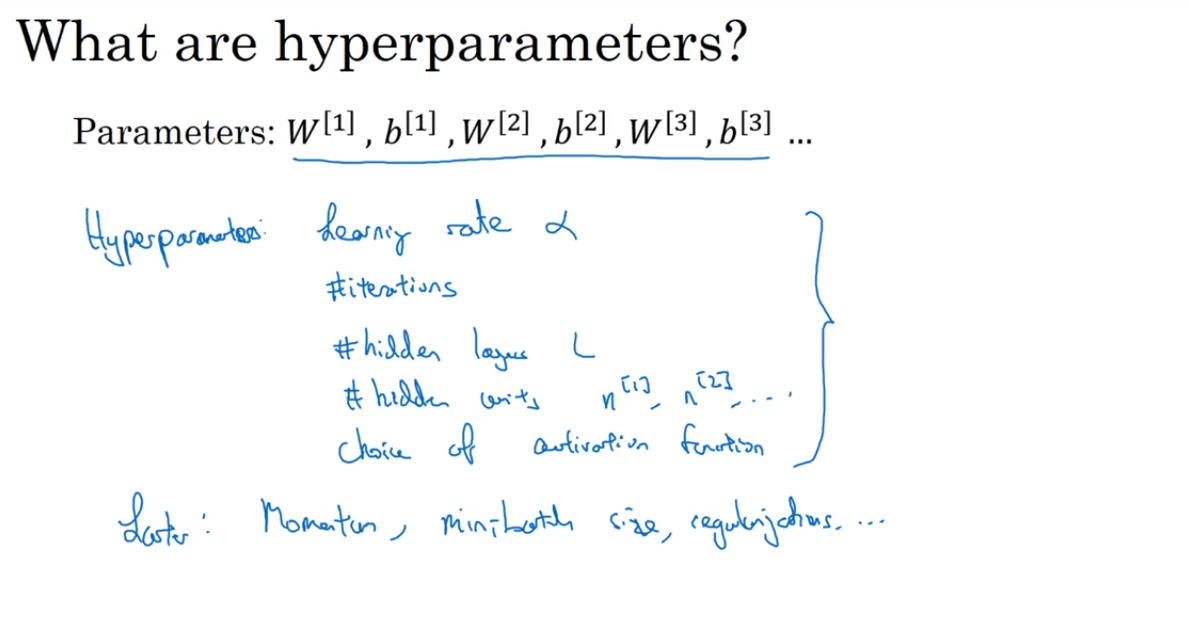 What are hyperparameters?
Parameters: W[1] , b[1] , W[2] , b[2] , W[3] , b[3] ...
Hyperparameters: Learning rate α
#iterations
#hidden layers L
#hidden units n[1], n[2], ....
Choice of activation function
Later: Momentum, minibatch size, regularizations. ...